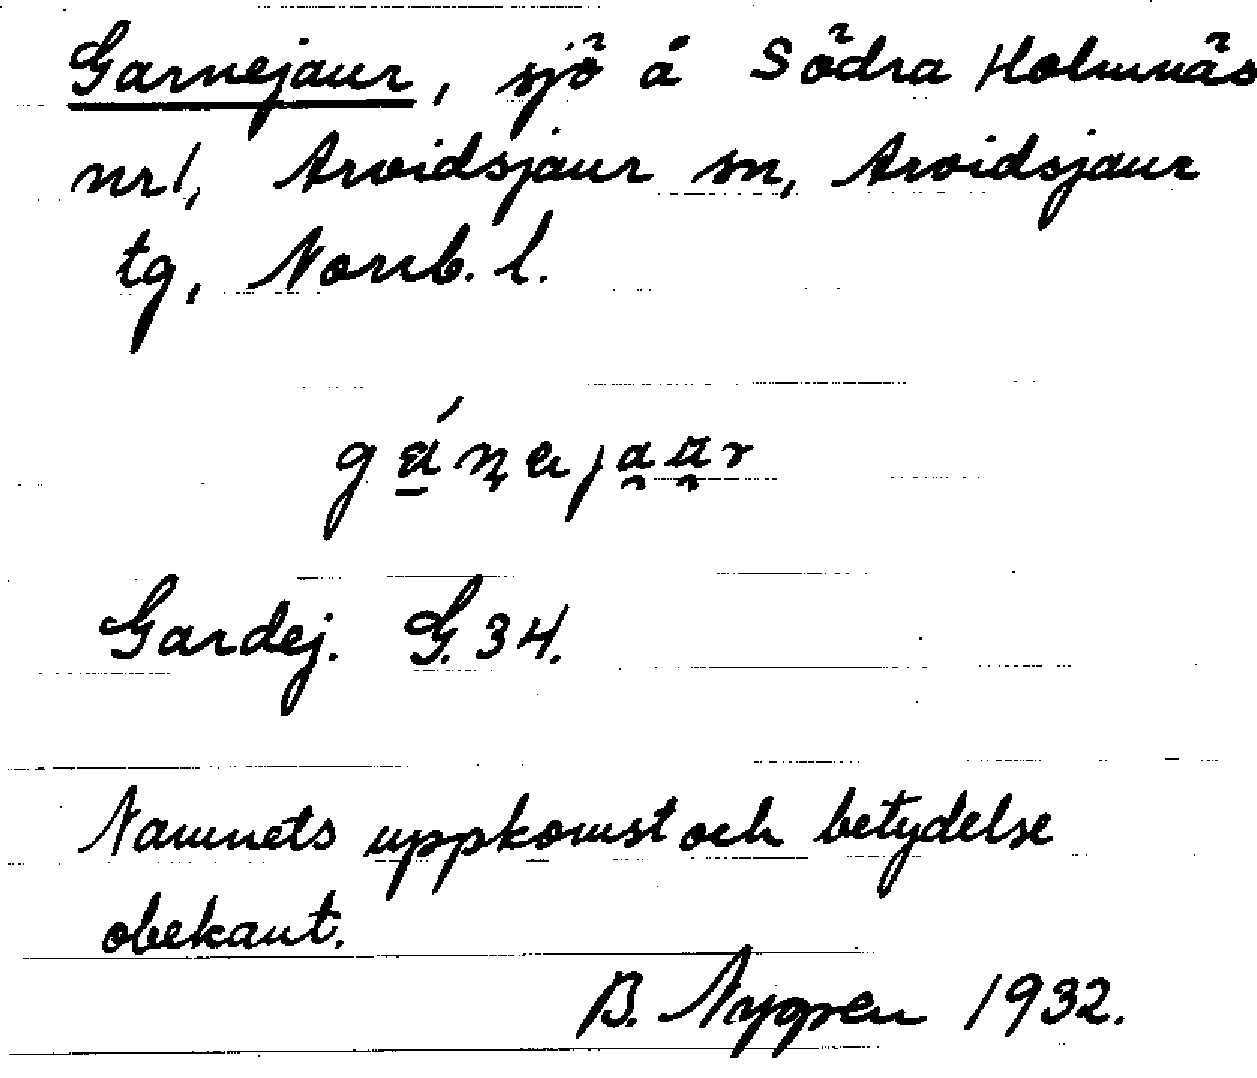 Garnejaur, sjö å Södra Holmnäs
nr1, Arvidsjaur sn, Arvidsjaur
tg, Norrb. l.
Gardej. G.34.
Namnets uppkomst och betydelse
obekant.
B. Nygren 1932.